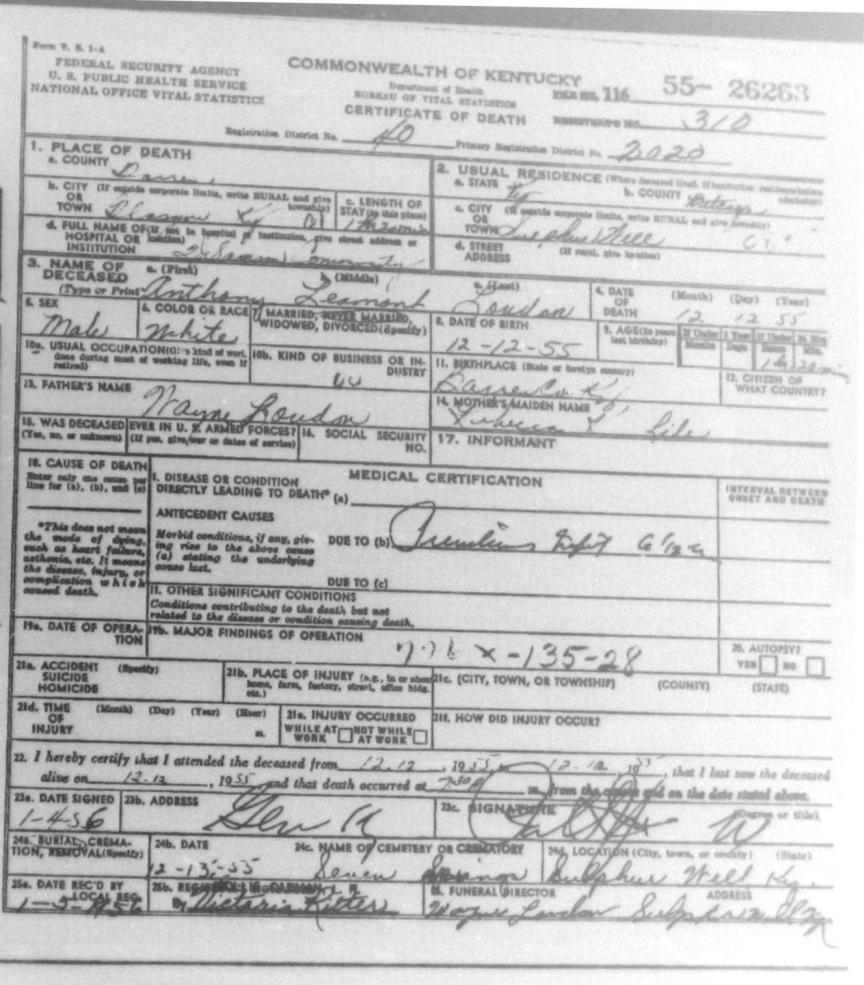 Form V. S. 1-A
FEDERAL SECURITY AGENCY
U. S. PUBLIC HEALTH SERVICE
NATIONAL OFFICE VITAL STATISTICS
COMMONWEALTH OF KENTUCKY
Department of Health
BUREAU OF VITAL STATISTICS
CERTIFICATE OF DEATH
FILE NO. 116 55- 26263
REGISTRAR'S NO. 310
Registration District No. 40 Primary Registration District No. 2020
1. PLACE OF DEATH
a. COUNTY Barren
b. CITY (If outside corporate limits, write RURAL and give township)
OR
TOWN Glasgow Ky
c. LENGTH OF STAY (in this place)
1 hr 20 min
d. FULL NAME OF (If not in hospital or institution, give street address or location)
HOSPITAL OR
INSTITUTION T. J. Samson Community
2. USUAL RESIDENCE (Where deceased lived. If institution: residence before admission)
a. STATE Ky b. COUNTY Metcalfe
c. CITY (If outside corporate limits, write RURAL and give township)
OR
TOWN Sulphur Well
d. STREET (If rural, give location)
ADDRESS
3. NAME OF DECEASED a. (First) b. (Middle) c. (Last)
(Type or Print) Anthony Leamont Loudon
4. DATE OF DEATH (Month) (Day) (Year)
12 12 55
5. SEX
Male
6. COLOR OR RACE
White
7. MARRIED, NEVER MARRIED, WIDOWED, DIVORCED (Specify)
8. DATE OF BIRTH
12-12-55
9. AGE (In years last birthday) If Under 1 Year Months Days If Under 24 Hrs Hours Min.
1 hr 20 min
10a. USUAL OCCUPATION (Give kind of work done during most of working life, even if retired)
10b. KIND OF BUSINESS OR INDUSTRY
11. BIRTHPLACE (State or foreign country)
Barren Co Ky
12. CITIZEN OF WHAT COUNTRY?
13. FATHER'S NAME
Wayne Loudon
14. MOTHER'S MAIDEN NAME
15. WAS DECEASED EVER IN U. S. ARMED FORCES?
(Yes, no, or unknown) (If yes, give war or dates of service)
16. SOCIAL SECURITY NO.
17. INFORMANT
18. CAUSE OF DEATH
Enter only one cause per line for (a), (b), and (c)
*This does not mean the mode of dying, such as heart failure, asthenia, etc. It means the disease, injury, or complication which caused death.
MEDICAL CERTIFICATION
I. DISEASE OR CONDITION
DIRECTLY LEADING TO DEATH* (a)
INTERVAL BETWEEN ONSET AND DEATH
ANTECEDENT CAUSES
Morbid conditions, if any, giving rise to the above cause (a) stating the underlying cause last.
DUE TO (b)
DUE TO (c)
II. OTHER SIGNIFICANT CONDITIONS
Conditions contributing to the death but not related to the disease or condition causing death.
19a. DATE OF OPERATION
19b. MAJOR FINDINGS OF OPERATION
776 X -135-28
20. AUTOPSY?
YES NO
21a. ACCIDENT (Specify)
SUICIDE
HOMICIDE
21b. PLACE OF INJURY (e.g., in or about home, farm, factory, street, office bldg. etc.)
21c. (CITY, TOWN, OR TOWNSHIP) (COUNTY) (STATE)
21d. TIME OF INJURY (Month) (Day) (Year) (Hour)
m.
21e. INJURY OCCURRED
WHILE AT WORK NOT WHILE AT WORK
21f. HOW DID INJURY OCCUR?
22. I hereby certify that I attended the deceased from 12.12, 1955 to 12.12, 1955, that I last saw the deceased
alive on 12.12, 1955 and that death occurred at 7:30 m., from the causes and on the date stated above.
23a. DATE SIGNED
1-4-56
23b. ADDRESS
23c. SIGNATURE (Degree or title)
24a. BURIAL, CREMATION, REMOVAL (Specify)
24b. DATE
12-13-55
24c. NAME OF CEMETERY OR CREMATORY
Seven Springs
24d. LOCATION (City, town, or county) (State)
Sulphur Well Ky.
25a. DATE REC'D BY LOCAL REG.
1-5-1956
By Victoria Ritter
FUNERAL DIRECTOR ADDRESS
Wayne Loudon Sulphur Well Ky